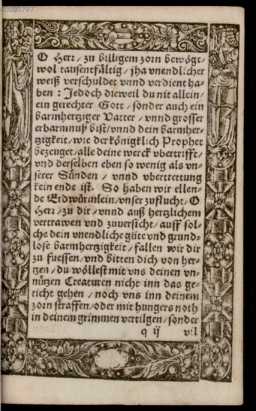 O Herr / zu billigem zorn bewögt-
wol tausentfältig / jha vnendlicher
weiß verschuldet vnnd verdienet ha-
ben : Jedoch dieweil du nit allein-
ein gerechter Gott / sonder auch ein
barmhertziger Vatter / vnnd grosser
erbarmnuß bist / vnnd dein barmher-
zigkeit / wie der königklich Prophet
bezeuget / alle deine werck vbertrifft /
vnd derselben eben so wenig als vn-
serer Sünden / vnnd vbertrettung
kein ende ist. So haben wir ellen-
de Erdwürmlein / vnser zuflucht / O
Herr / zu dir / vnnd auß hertzlichem
vertrawen vnd zuuersicht / auff sol-
che dein vnendliche güte vnd grund-
lose barmhertzigkeit / fallen wir dir
zu fuessen / vnd bitten dich von her-
tzen / du wöllest mit vns deinen vn-
nützen Creaturen nicht inn das ge-
richt gehen / noch vns inn deinem
zorn straffen / oder mit hungers noth
in deinem grimmen vertilgen / sonder
q ij vil